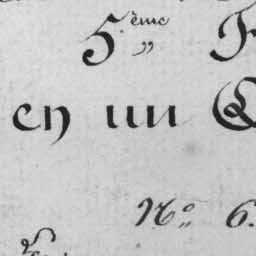 5.ème
en un
No. 6.